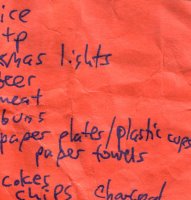 ice
tp
xmas lights
beer
meat
buns
paper plates/plastic cups
paper towels
cokes
chips charcoal